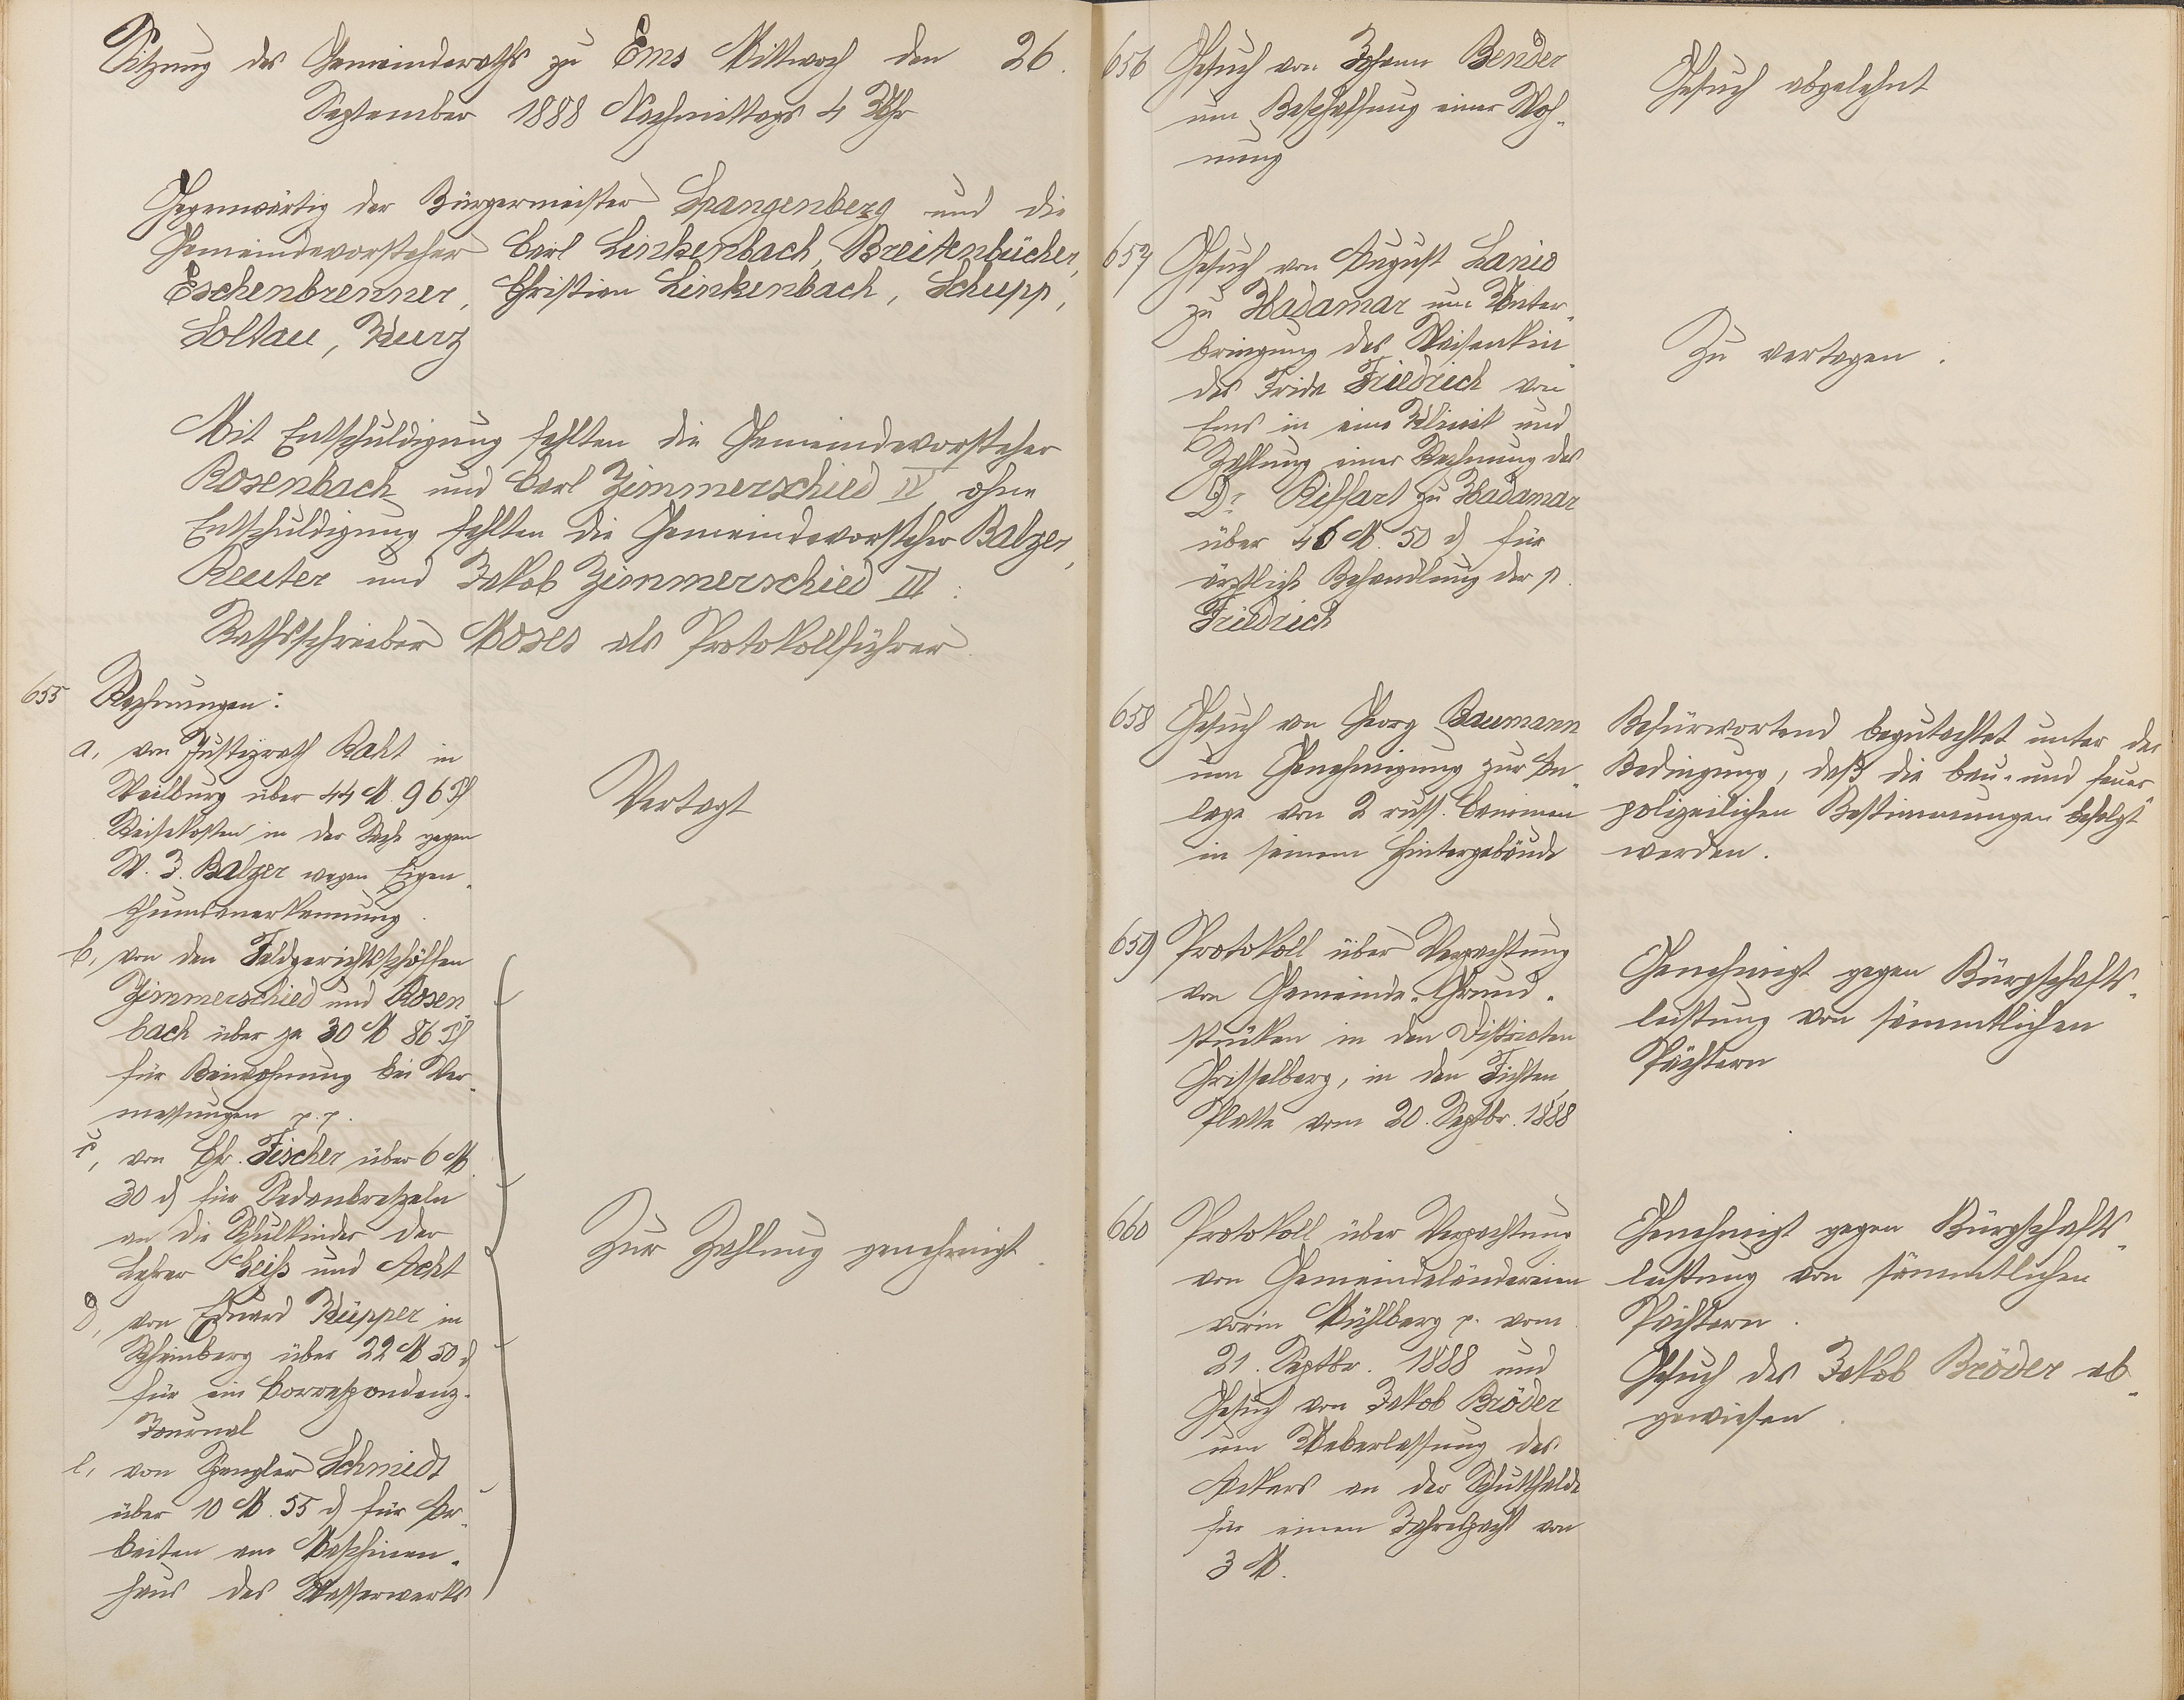 Sitzung des Gemeinderaths zu Ems Mittwoch den 26.
September 1888 Nachmittags 4 Uhr
Gegenwärtig der Bürgermeister Spangenberg und die
Gemeindevorsteher Carl Linkenbach, Breitenbücher,
Eschenbrenner, Christian Linkenbach, Schupp,
Soltau, Kurz
Mit Entschuldigung fehlten die Gemeindevorsteher
Rosenbach und Carl Zimmerschied IV ohne
Entschuldigung fehlten die Gemeindevorsteher Balzer,
Reuter und Jakob Zimmerschied III.
Rathsschreiber Moses als Protokollführer
655 Rechnungen:
a, von Justizrath Raht in
Weilburg über 44 M. 96 Pf
Reisekosten in der Sache gegen
W. J. Balzer wegen Eigen-
thumsanerkennung.
Vertagt
b, von den Feldgerichtsschöffen
Zimmerschied und Rosen-
bach über je 30 M 86 Pf
für Beiwohnung bei Ver-
messungen p.p.
c, von Chr. Fischer über 6 M.
30 d für Sedanbretzeln
an die Schulkinder der
Lehrer Geiß und Acht
d, von Eduard Küpper in
Rheinberg über 22 M 50 d
für ein Correspondenz-
Journal
e, von Spengler Schmidt
über 10 M. 55 d für Ar-
beiten am Maschinen-
haus des Wasserwerks
Zur Zahlung genehmigt.
656 Gesuch von Johann Bender
um Beschaffung einer Woh-
nung
Gesuch abgelehnt
657 Gesuch von August Lanio
zu Hadamar um Unter-
bringung des Waisenkin-
des Frida Friedrich von
Ems in eine Klinik und
Zahlung einer Rechnung des
Dr. Riffart zu Hadamar
über 46 M. 50 d für
ärztliche Behandlung der p.
Friedrich
Zu vertagen.
658 Gesuch von Georg Baumann
um Genehmigung zur An-
lage von 2 russ. Caminen
in seinem Hintergebäude
Befürwortend begutachtet unter der
Bedingung, daß die bau- und feuer-
polizeilichen Bestimmungen befolgt
werden.
659 Protokoll über Verpachtung
von Gemeinde-Grund-
stücken in den Districten
Grisselberg, in den Fichten,
Platte vom 20. Septbr. 1888
Genehmigt gegen Bürgschafts-
leistung von sämmtlichen
Pächtern
660 Protokoll über Verpachtung
von Gemeindeländereien
vorm Mühlberg p. vom
21. Septbr. 1888 und
Gesuch von Jakob Bröder
um Ueberlassung des
Ackers an der Schutthalde
für einen Jahrespacht von
3 M.
Genehmigt gegen Bürgschafts-
leistung von sämmtlichen
Pächtern.
Gesuch des Jakob Bröder ab-
gewiesen.